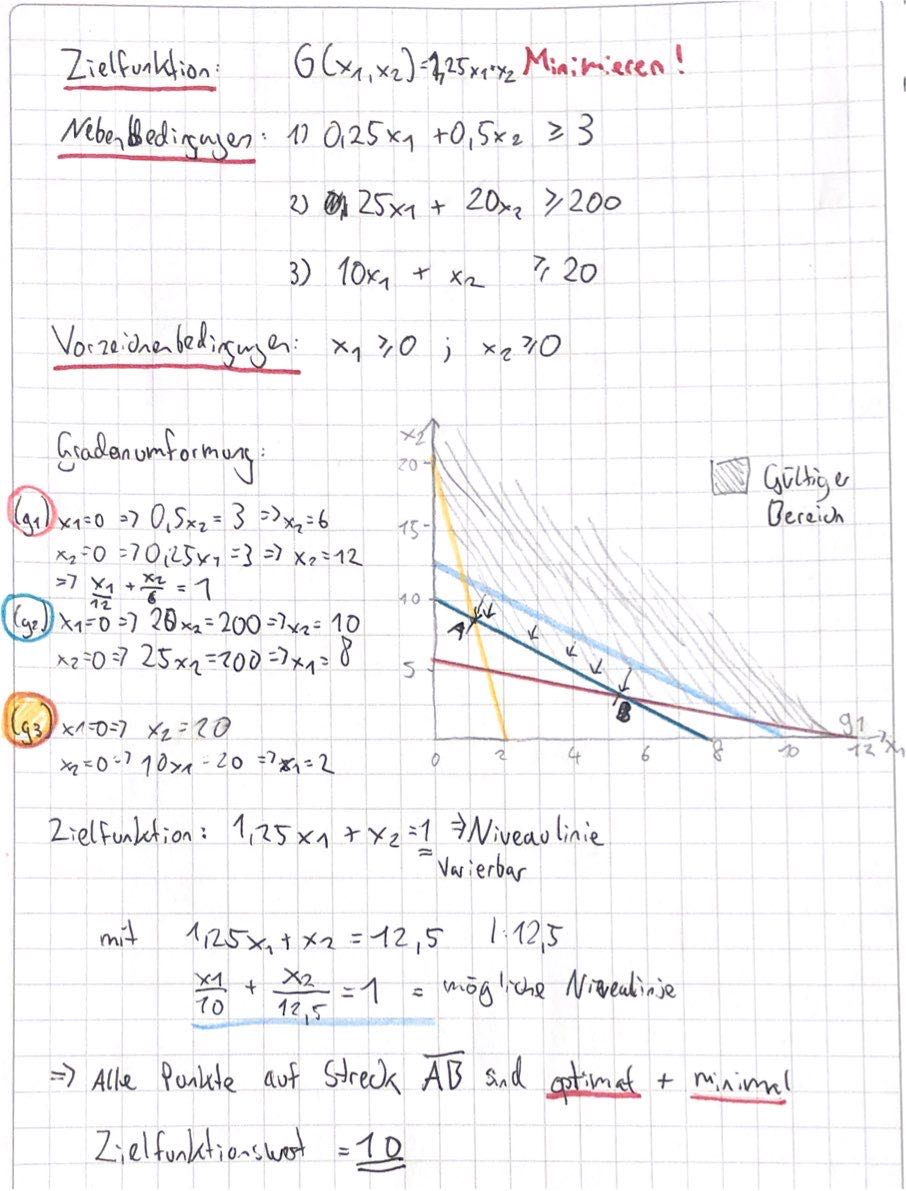 Zielfunktion: G(x₁,x₂)=1,25x₁+x₂ Minimieren!
Nebenbedingungen: 1) 0,25x₁ +0,5x₂ ≥ 3
2) 25x₁ + 20x₂ ≥ 200
3) 10x₁ + x₂ ≥ 20
Vorzeichenbedingungen: x₁ ≥ 0 ; x₂ ≥ 0
Gradenumformung:
(g1) x₁=0 => 0,5x₂ = 3 => x₂=6
x₂=0 => 0,25x₁ =3 => x₂=12
=> x₁/12 + x₂/6 = 1
(g2) x₁=0 => 20x₂=200 => x₂= 10
x₂=0 => 25x₂=200 => x₁= 8
(g3) x1=0 => x₂=20
x₂=0 => 10x₁ = 20 => x₁=2
x₂
20
15
10
5
0 2 4 6 8 10 12 x₁
A
B
g1
Gültiger
Bereich
Zielfunktion: 1,25x₁ + x₂ =1 => Niveaulinie
Varierbar
mit 1,25x₁ + x₂ = 12,5 |:12,5
x1/10 + x₂/12,5 = 1 = mögliche Niveaulinie
=> Alle Punkte auf Streck AB sind optimal + minimal
Zielfunktionswert = 10